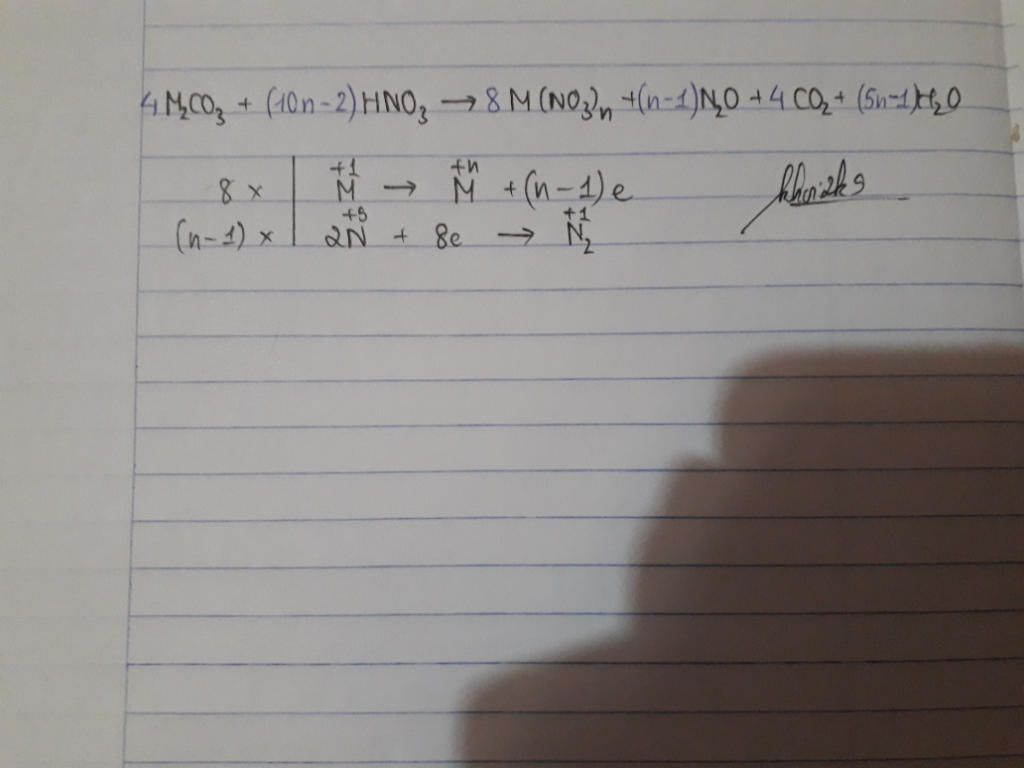 4 M₂CO₃ + (10n-2)HNO₃ → 8 M(NO₃)n + (n-1)N₂O + 4 CO₂ + (5n-1)H₂O
8 × | +1 M → +n M + (n-1)e
(n-1) × | 2 +5 N + 8e → +1 N₂